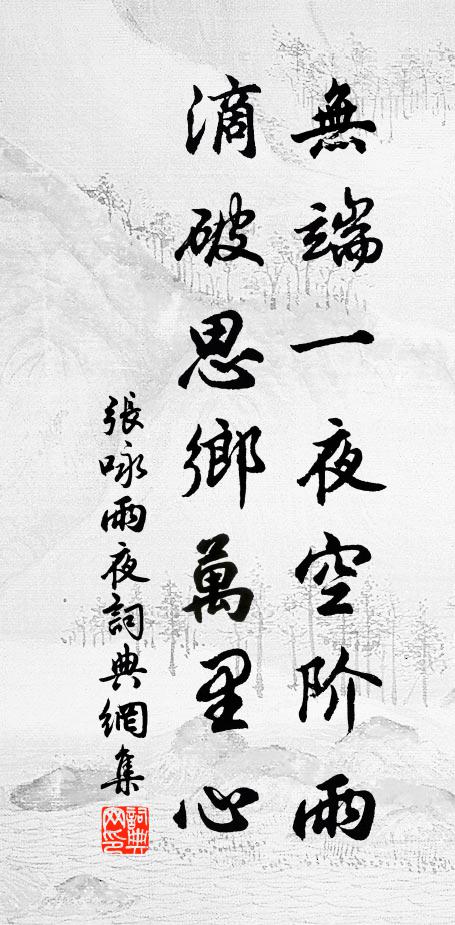 無端一夜空阶雨
滴破思鄉萬里心
張咏雨夜詞典網集
詞典网印